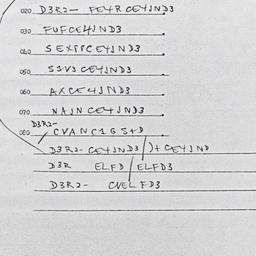 020 D3R2- FE4R CE4JND3
030 FUFCE4JND3
040 SEXFFCE4JND3
050 S1V3 CE4JND3
060 AXCE4JND3
070 NAJN CE4JND3
D3R2-
080 CVANC1GS+D
D3R2- CE4JND3/)+ CE4JND
D3R ELFD/ELFD3
D3R2- CVEL FD3